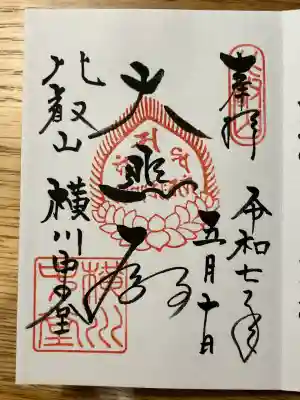 奉拝
令和七年
五月十日
大悲
比叡山
横川中堂
横川中堂